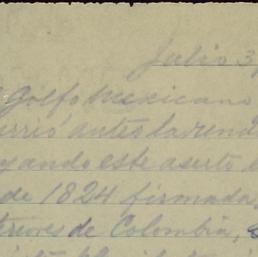 Julio 3
Golfo Mexicano
urrió antes la rend
yando este aserto e
de 1824 firmada
teriores de Colombia,